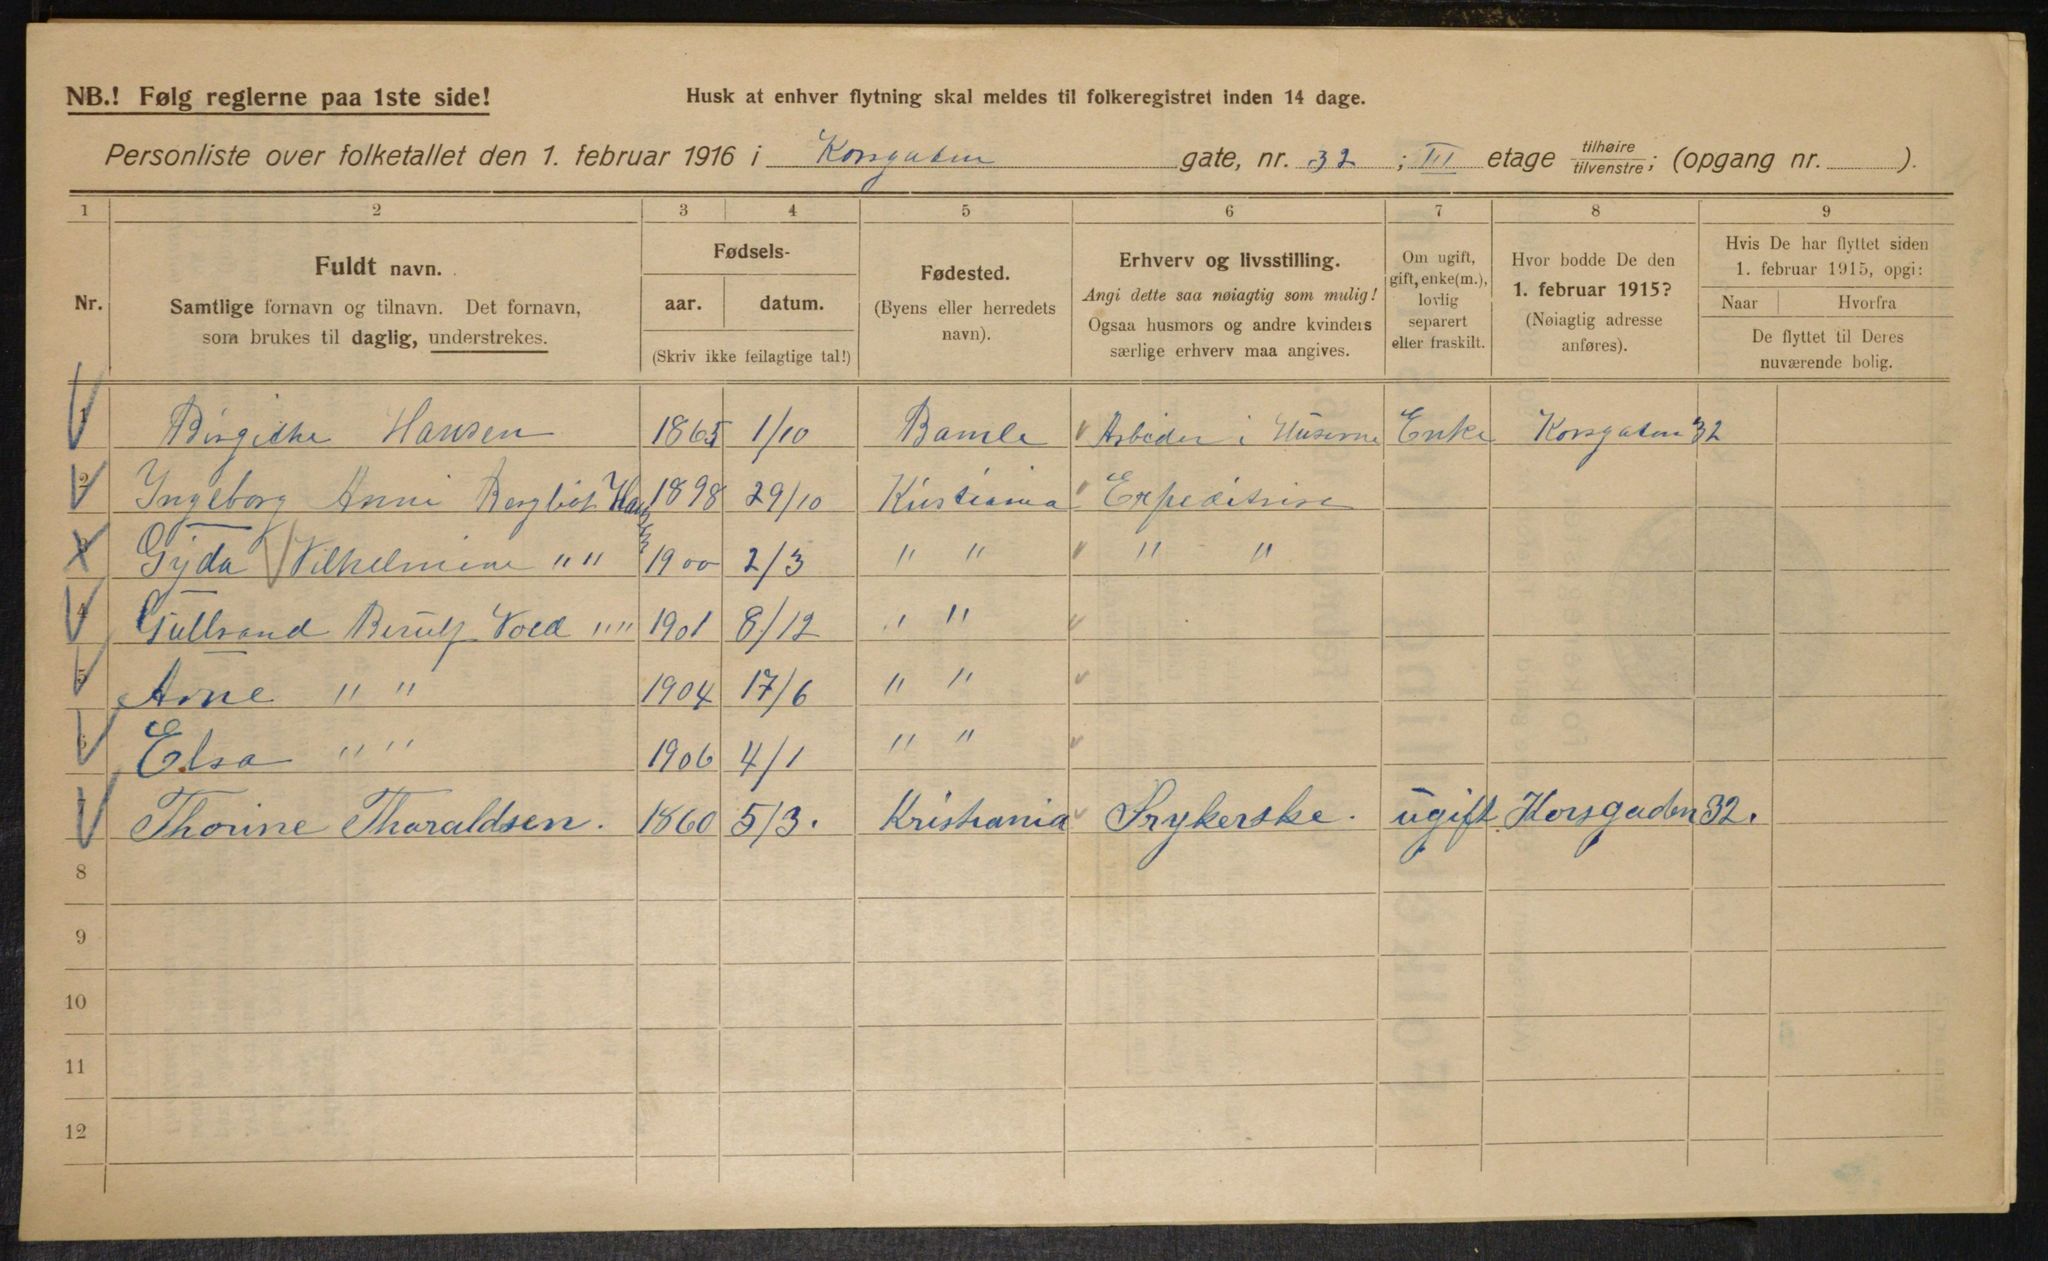 NB.! Følg reglerne paa 1ste side!
Husk at enhver flytning skal meldes til folkeregistret inden 14 dage.
Personliste over folketallet den 1. februar 1916 i Korsgaten gate, nr. 32 ; III etage tilhøire/tilvenstre; (opgang nr. ).
1 2 3 4 5 6 7 8 9
Nr.
Fuldt navn.
Samtlige fornavn og tilnavn. Det fornavn,
som brukes til daglig, understrekes.
Fødsels-
aar. datum.
(Skriv ikke feilagtige tal!)
Fødested.
(Byens eller herredets
navn).
Erhverv og livsstilling.
Angi dette saa nøiagtig som mulig!
Ogsaa husmors og andre kvinders
særlige erhverv maa angives.
Om ugift,
gift, enke(m.),
lovlig
separert
eller fraskilt.
Hvor bodde De den
1. februar 1915?
(Nøiagtig adresse
anføres).
Hvis De har flyttet siden
1. februar 1915, opgi:
Naar Hvorfra
De flyttet til Deres
nuværende bolig.
1 Birgithe Hansen 1865 1/10 Bamle Arbeider i Húserne Enke Korsgaten 32
2 Ingeborg Anni Bergliot Hansen 1898 29/10 Kristiania Expeditrise
3 Gyda Vilhelmine " " 1900 2/3 " " " "
4 Gullrand 1901 8/12 " "
5 Arne " " 1904 17/6 " "
6 Elsa " " 1906 4/1 " "
7 Thorine Tharaldsen. 1860 5/3. Kristiania Srykerske. ugift Korsgaden 32.
8
9
10
11
12